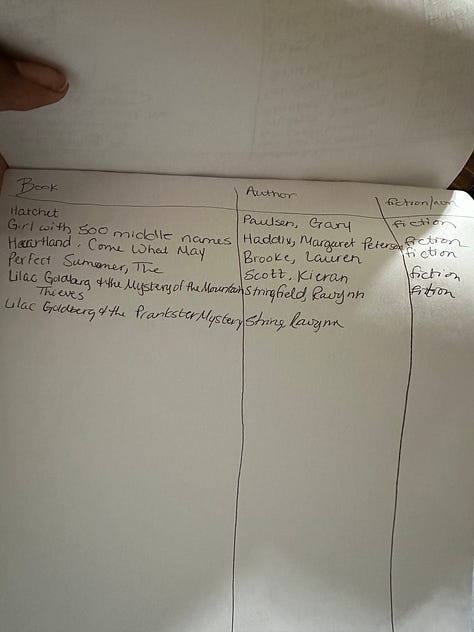 Book Author fiction/non
Hatchet Paulsen, Gary fiction
Girl with 500 middle names Haddix, Margaret Peterson fiction
Heartland, Come What May Brooke, Lauren fiction
Perfect Summer, The Scott, Kieran fiction
Lilac Goldberg & the Mystery of the Mountain Stringfield, Ravynn fiction
Thieves
Lilac Goldberg & the Prankster Mystery String, Ravynn